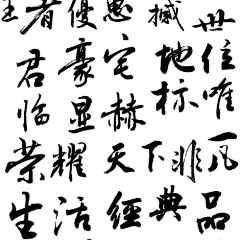 王者優撼世
君豪宅地位
临显赫标唯
一
荣耀天下非凡
生活經典品